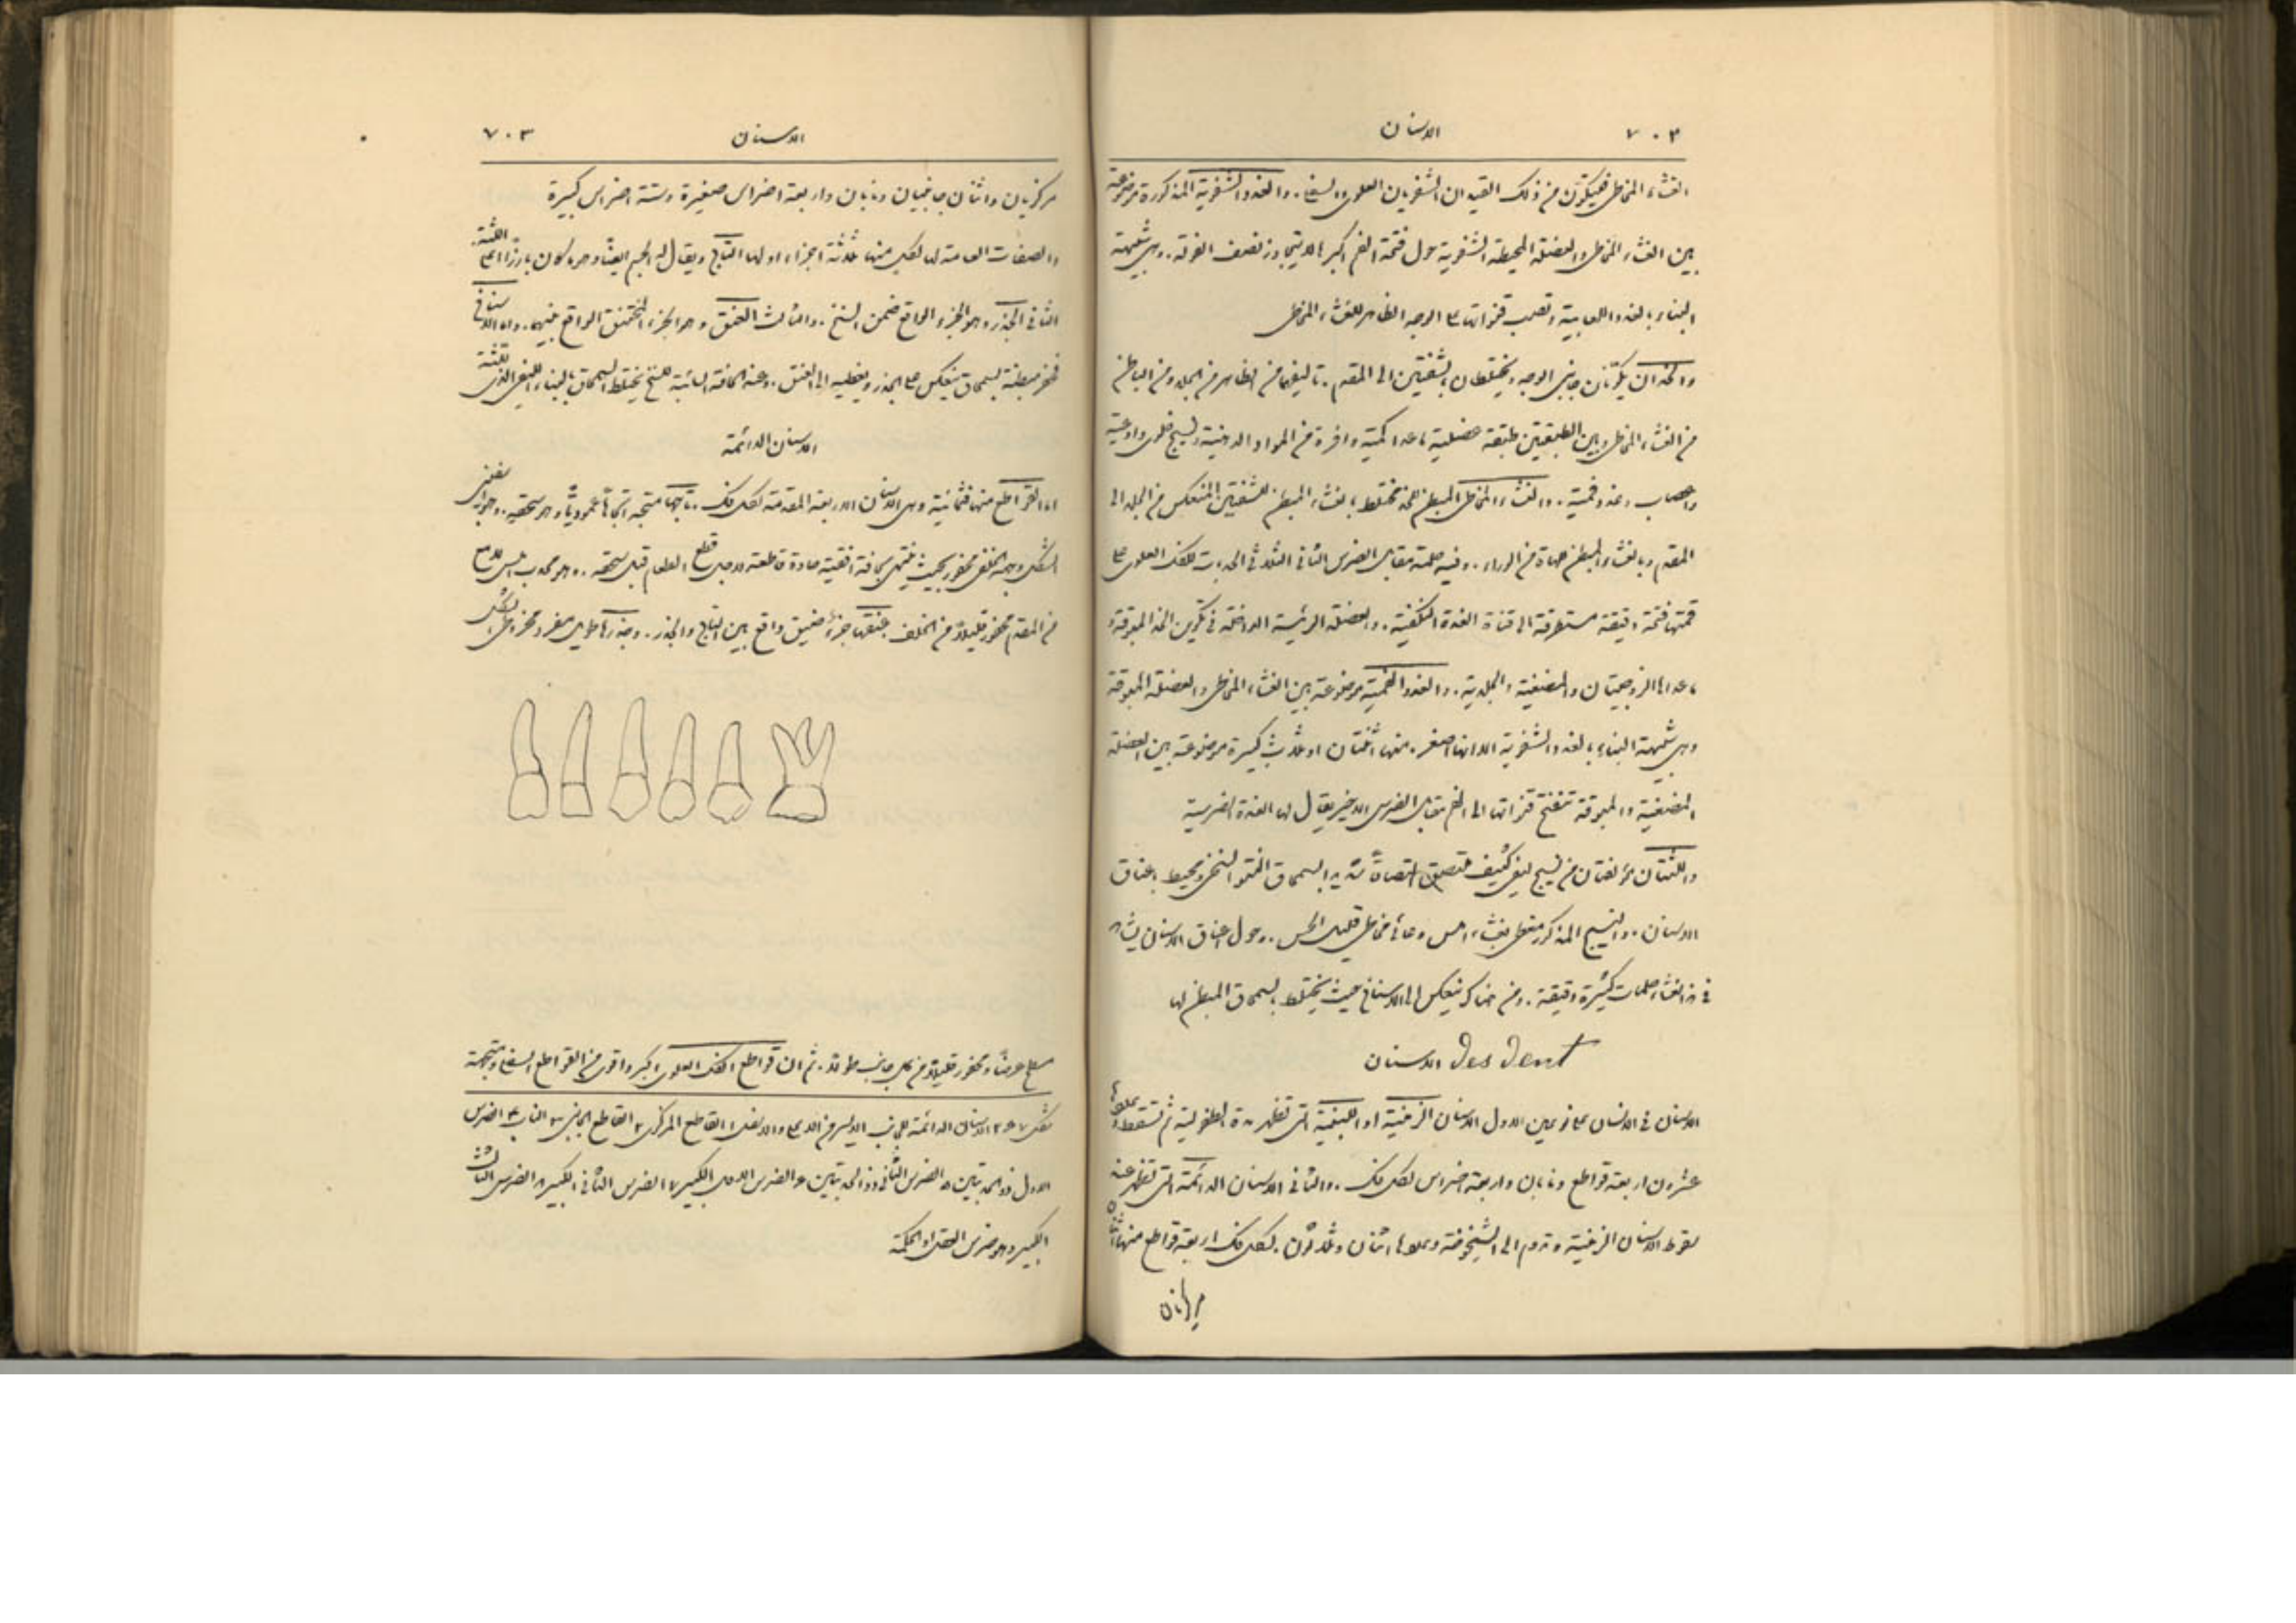 ٧٠٢ الاسنان
الغشاء المخاطي فيتكون من ذلك القيدان الشفويان العلوي والسفلي. والغدد الشفوية المذكورة موضوعة
بين الغشاء المخاطي والعضلة المحيطة الشفوية حول فتحة الفم اكبرها لا يتجاوز نصف الفولة. وهي شبيهة
البناء بالغدد اللعابية وتصب قنواتها على الوجه الظاهر للغشاء المخاطي
والخدان يكوّنان جانبي الوجه ويختلطان بالشفتين الى المقدم. تاليفهما من الظاهر من الجلد ومن الباطن
من الغشاء المخاطي وبين الطبقتين طبقة عضلية ما عدا كمية وافرة من المواد الدهنية ونسيج خلوي واوعية
واعصاب وغدد فمية. والغشاء المخاطي المبطن للخد مختلط بالغشاء المبطن للشفتين المنعكس من الجلد الى
المقدم وبالغشاء المبطن للهاة من الوراء. وفيه حلمة مقابل الضرس الثاني الثلاثي الحدبات للفك العلوي على
قمتها فتحة دقيقة مستطرقة الى قناة الغدة النكفية. والعضلة الرئيسة الداخلة في تكوين الخد المبوقة و
ما عداها الزوجيتان والمضغية والجلدية. والغدد الفمية موضوعة بين الغشاء المخاطي والعضلة المبوقة
وهي شبيهة البناء بالغدد الشفوية الا انها اصغر. منها اثنتان او ثلاث كبيرة موضوعة بين العضلة
المضغية والمبوقة تنفتح قنواتها الى الفم مقابل الضرس الاخير يقال لها الغدة الضرسية
واللثتان مؤلفتان من نسيج ليفي كثيف ملتصق التصاقاً شديداً بالسمحاق السنخي ومحيط باعناق
الاسنان. والنسيج المذكور مغطى بغشاء املس وعائي مخاطي قليل الحس. وحول اعناق الاسنان يشاهد
في هذا الغشاء حلمات كثيرة دقيقة. ومن هناك ينعكس الى الاسناخ حيث يختلط بالسمحاق المبطن لها
الاسنان Des Dent
الاسنان في الانسان على نوعين الاول الاسنان الزمنية او اللبنية التي تظهر مدة الطفولية ثم تسقط وعددها
عشرون اربعة قواطع ونابان واربعة اضراس لكل فك. والثاني الاسنان الدائمة التي تظهر عند
سقوط الاسنان الزمنية وتدوم الى الشيخوخة وعددها اثنان وثلاثون. لكل فك اربعة قواطع منها اثنان
مركزيان
الاسنان ٧٠٣
مركزيان واثنان جانبيان ونابان واربعة اضراس صغيرة وستة اضراس كبيرة
والصفات العامة لها لكل منها ثلاثة اجزاء اولها التاج ويقال له الجسم ايضاً وهو يكون بارزاً اعلى اللثة.
الثاني الجذر وهو الجزء الواقع ضمن السنخ. والثالث العنق وهو الجزء المختنق الواقع بينهما. واما الاسناخ
فهي مبطنة بسمحاق ينعكس على الجذر ويغطيه الى العنق. وعند الحافة السائبة للسنخ يختلط السمحاق بالبناء الليفي الذي للثة
الاسنان الدائمة
اما القواطع منها فثمانية وهي الاسنان الاربعة المقدمة لكل فك. تاجها متجه اتجاهاً عمودياً وهو اسفيني
الشكل وجهه الخلفي محفور بحيث ينتهي بحافة افقية حادة قاطعة لاجل قطع الطعام قبل سحقه. وهو محدب املس لامع
من المقدم محفور قليلاً من الخلف. عنقها جزء ضيق واقع بين التاج والجذر. وجذرها طويل مفرد مخروطي الشكل
مسطح عرضاً ومحفور قليلاً من كل جانب طولاً. ثم ان قواطع الفك العلوي اكبر واقوى من القواطع السفلى ومتجهة
شكل ٢٠٧ الاسنان الدائمة للجانب الايسر من الاعلى والاسفل ١ القاطع المركزي ٢ القاطع الجانبي ٣ الناب ٤ الضرس
الاول ذو الحدبتين ٥ الضرس الثاني ذو الحدبتين ٦ الضرس الاول الكبير ٧ الضرس الثاني الكبير ٨ الضرس الثالث
الكبير وهو ضرس العقل او الحكمة